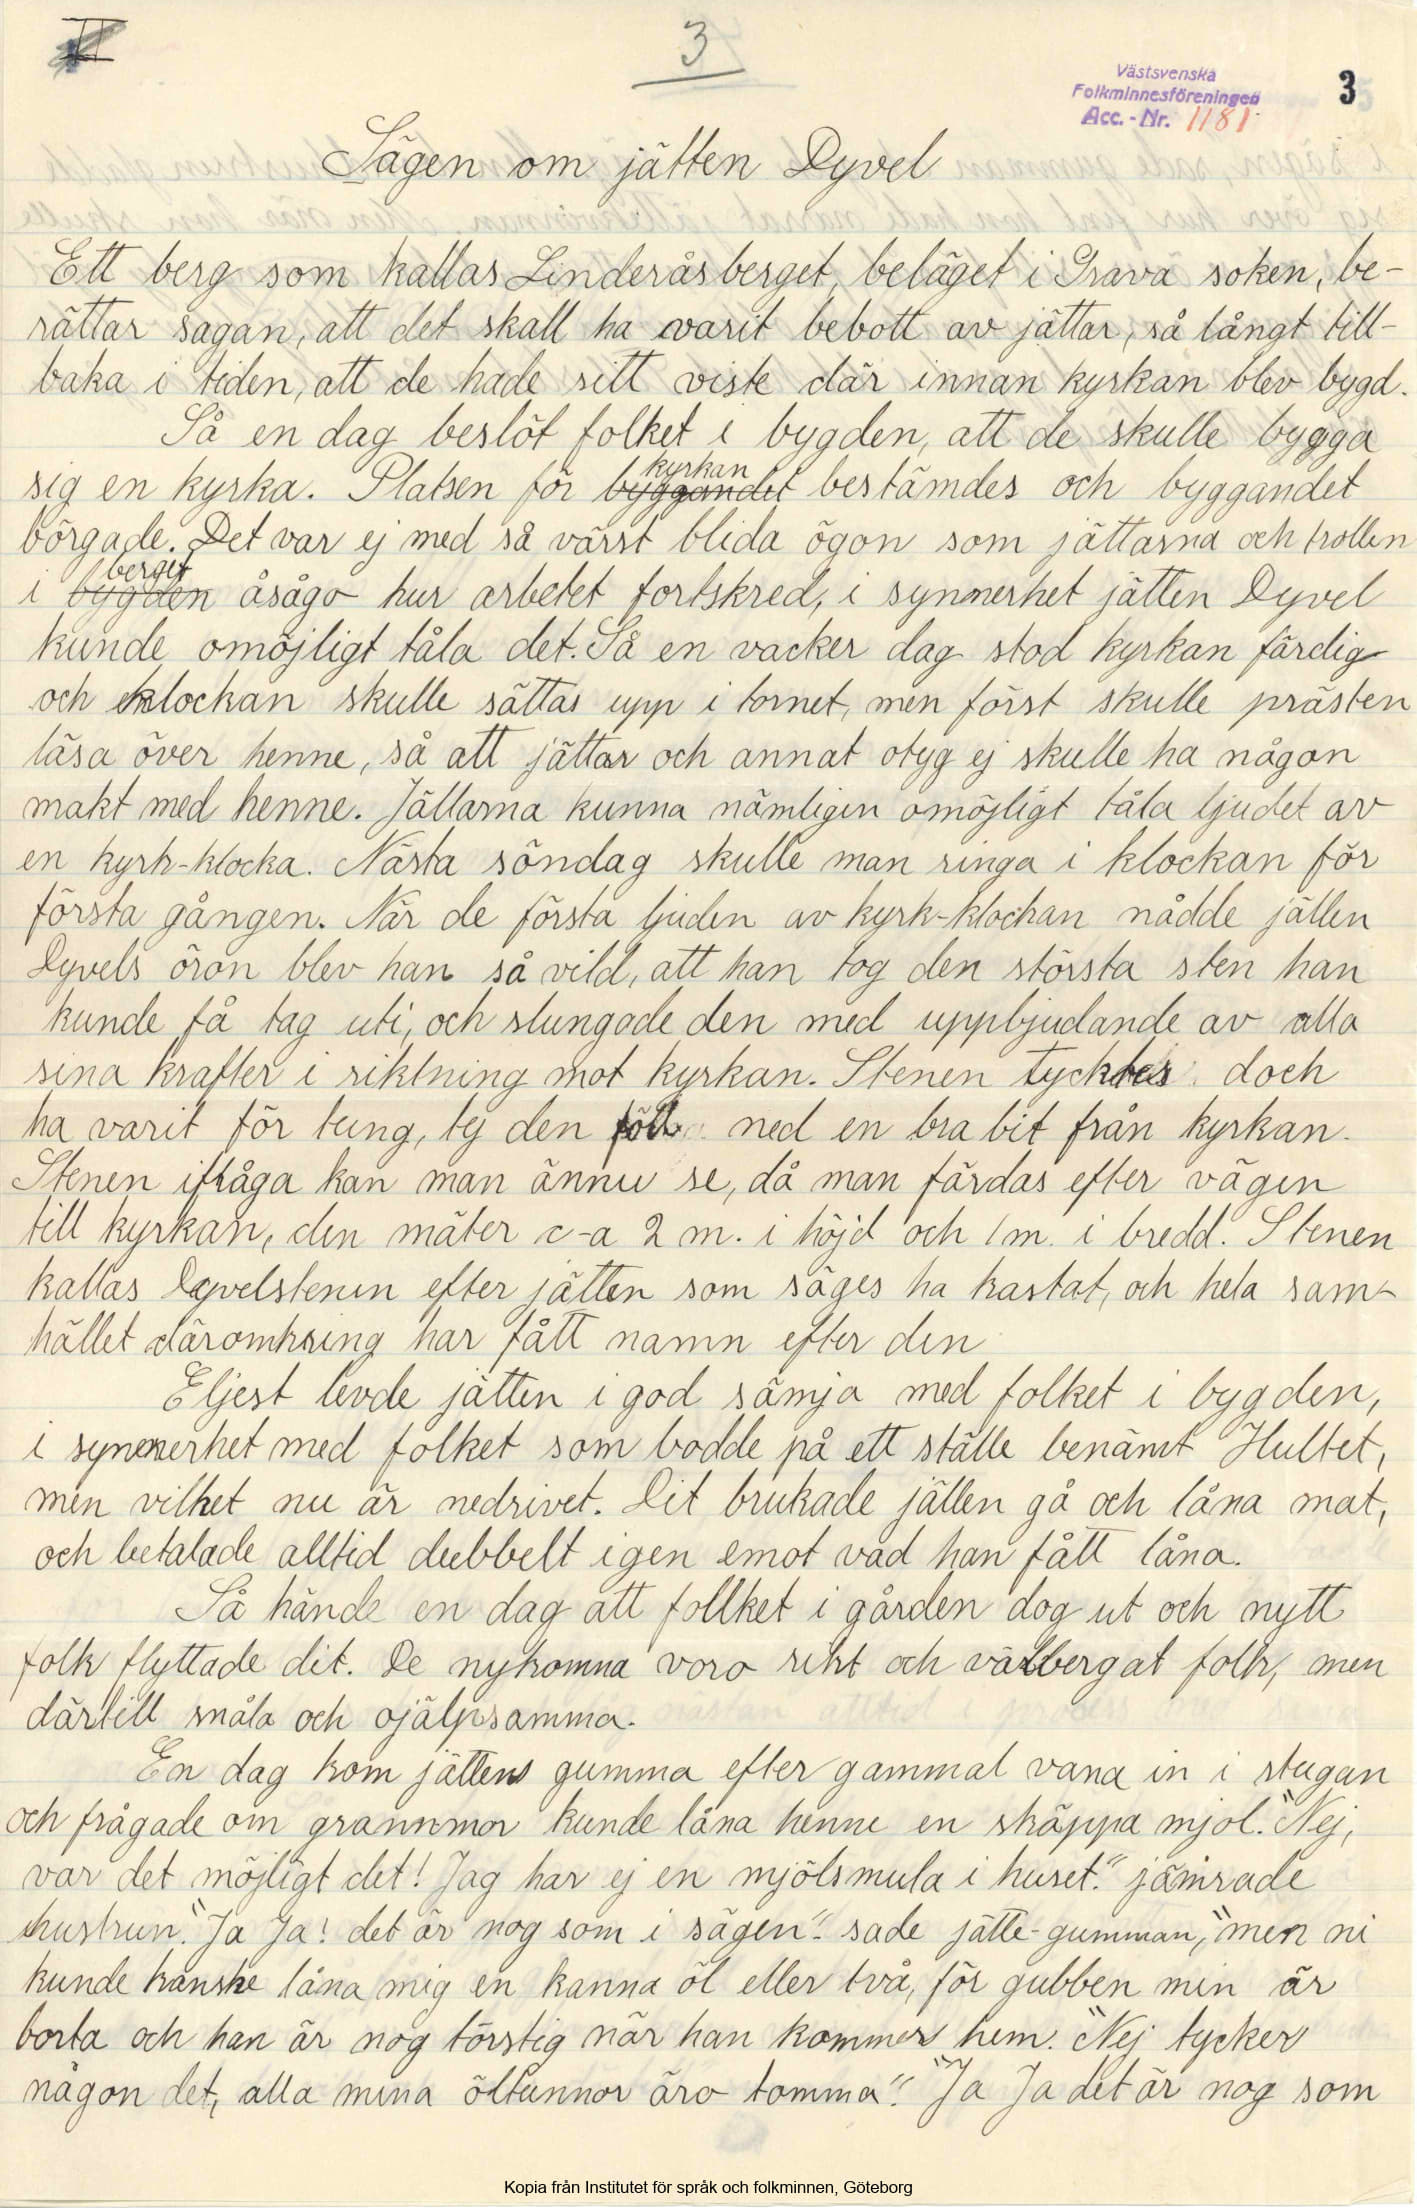 3
Västsvenska
Folkminnesföreningen
Acc.-Nr. 1181
3
Sägen om jätten Dyvel
Ett berg som kallas Linderåsberget, beläget i Grava soken, be-
rättar sagan, att det skall ha varit bebott av jättar, så långt till-
baka i tiden, att de hade sitt viste där innan kyrkan blev bygd.
Så en dag beslöt folket i bygden, att de skulle bygga
kyrkan
sig en kyrka. Platsen för byggandet bestämdes och byggandet
börgade. Det var ej med så värst blida ögon som jättarna och trollen
berget
i bygden åsågo hur arbetet fortskred, i synnerhet jätten Dyvel
kunde omöjligt tåla det. Så en vacker dag stod kyrkan färdig
och klockan skulle sättas upp i tornet, men först skulle prästen
läsa över henne, så att jättar och annat otyg ej skulle ha någon
makt med henne. Jättarna kunna nämligen omöjligt tåla ljudet av
en kyrk-klocka. Nästa söndag skulle man ringa i klockan för
första gången. När de första ljuden av kyrk-klockan nådde jätten
Dyvels öron blev han så vild, att han tog den största sten han
kunde få tag uti, och slungade den med uppbjudande av alla
sina krafter i riktning mot kyrkan. Stenen tycktes doch
ha varit för tung, ty den föll ned en bra bit från kyrkan.
Stenen ifråga kan man ännu se, då man färdas efter vägen
till kyrkan, den mäter c-a 2 m. i höjd och 1 m. i bredd. Stenen
kallas Dyvelstenen efter jätten som säges ha kastat, och hela sam-
hället däromkring har fått namn efter den
Eljest levde jätten i god sämja med folket i bygden,
i synnerhet med folket som bodde på ett ställe benämt Hultet,
men vilket nu är nedrivet. Dit brukade jätten gå och låna mat,
och betalade alltid dubbelt igen emot vad han fått låna.
Så hände en dag att follket i gården dog ut och nytt
folk flyttade dit. De nykomna voro rikt och välbergat folk, men
därtill snåla och ojälpsamma.
En dag kom jättens gumma efter gammal vana in i stugan
och frågade om grannmor kunde låna henne en skäppa mjöl. "Nej,
var det möjligt det! Jag har ej en mjölsmula i huset." jämrade
hustrun. "Ja Ja! det är nog som i sägen". sade jätte-gumman, "men ni
kunde kanske låna mig en kanna öl eller två, för gubben min är
borta och han är nog törstig när han kommer hem. "Nej tycker
någon det, alla mina öltunnor äro tomma". "Ja Ja det är nog som
Kopia från Institutet för språk och folkminnen, Göteborg